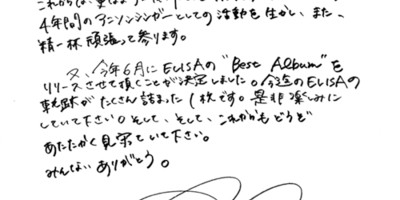 4年間のアニソンシンガーとしての活動を生かし、また、
精一杯頑張って参ります。
又、今年6月にELISAの"Best Album"を
リリースさせて頂くことが決定しました。今迄のELISAの
軌跡がたくさん詰まった1枚です。是非楽しみに
していて下さい。そして、そして、これからもどうぞ
あたたかく見守っていて下さい。
みんな、ありがとう。